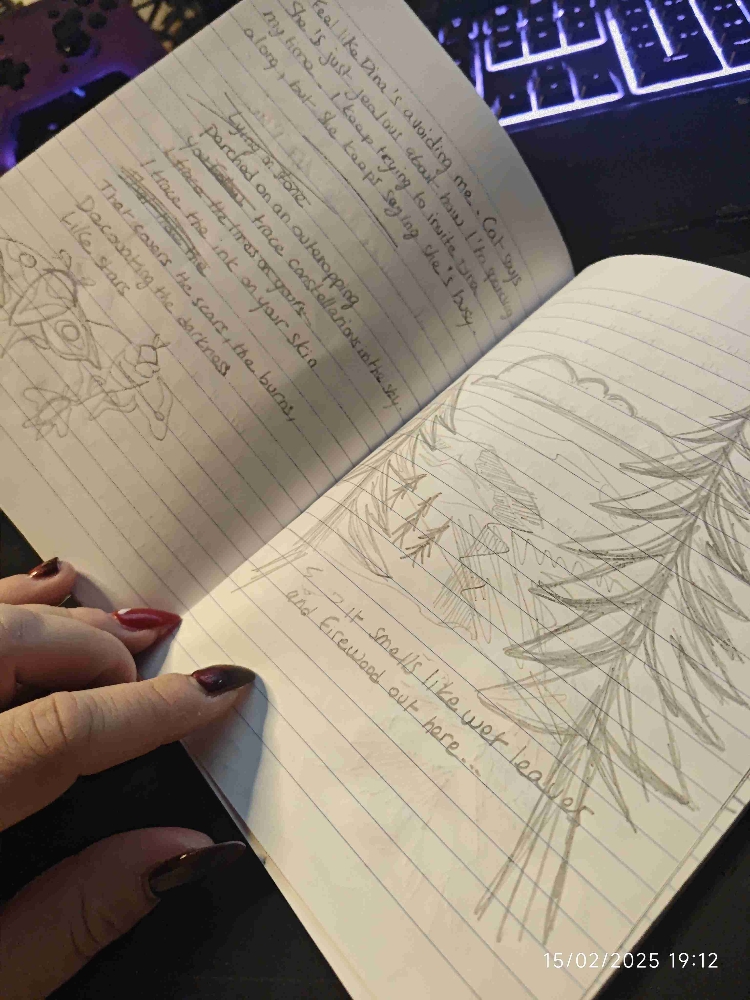 Feel like Dina's avoiding me. Cat says
She's just jealous about how I'm spending
my time. I keep trying to invite Dina
along, but she keeps saying she's busy
Lying in
Perched on an outcropping
You trace constellations in the sky.
I trace the
I trace the ink on your skin
That covers the scars, the burns,
Decorating the darkness
Like stars
It smells like wet leaves
and firewood out here...
15/02/2025 19:12